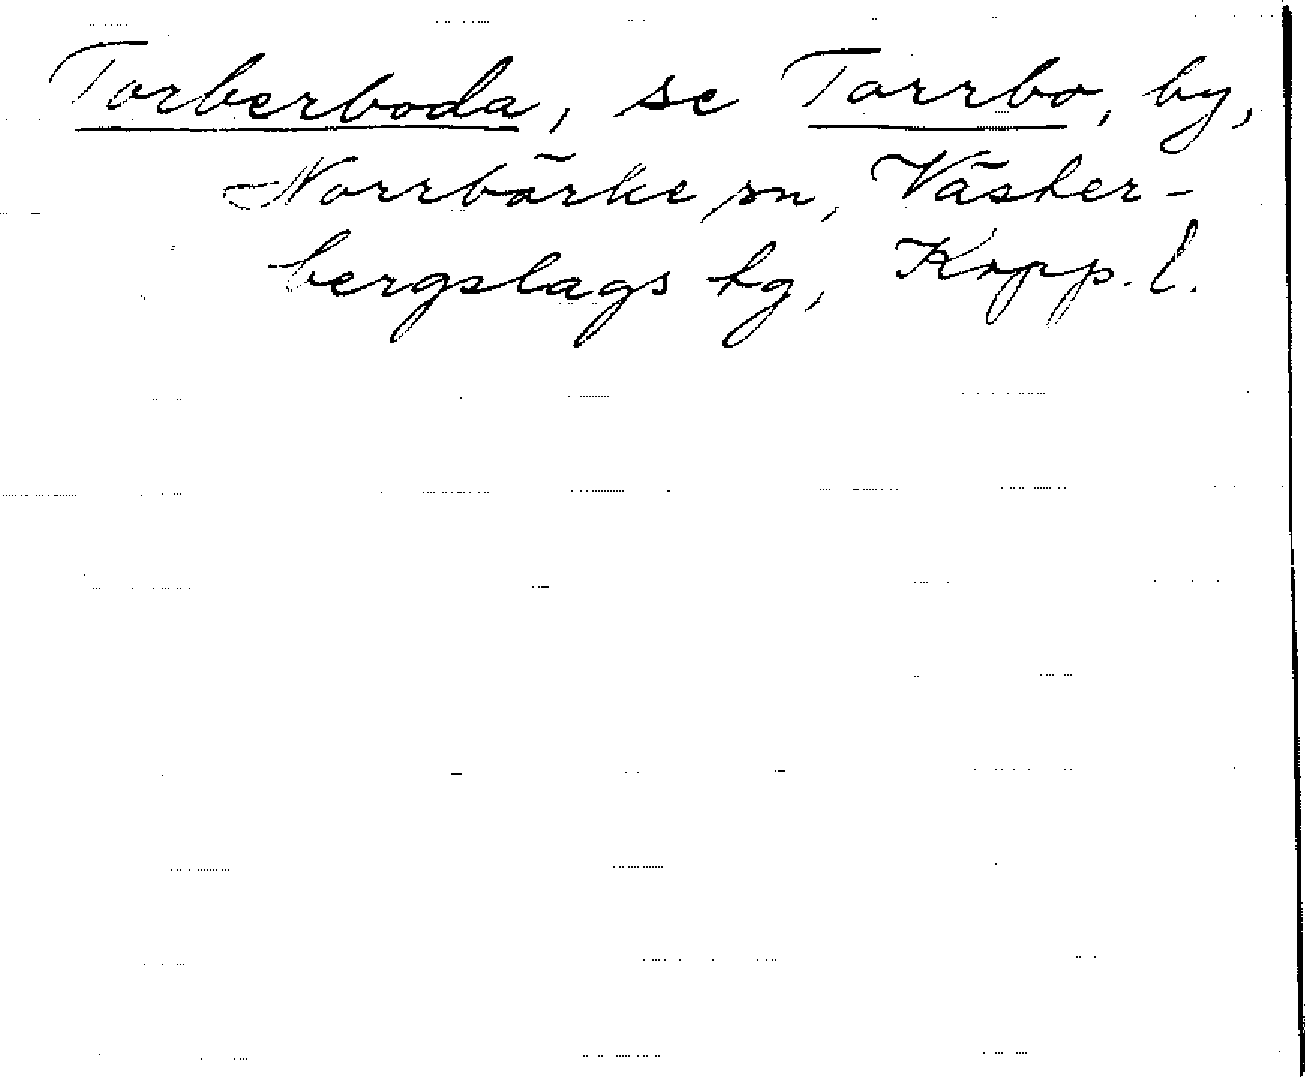 Torberboda, se Torrbo, by,
Norrbärke sn, Väster-
bergslags hg, Kopp. l.